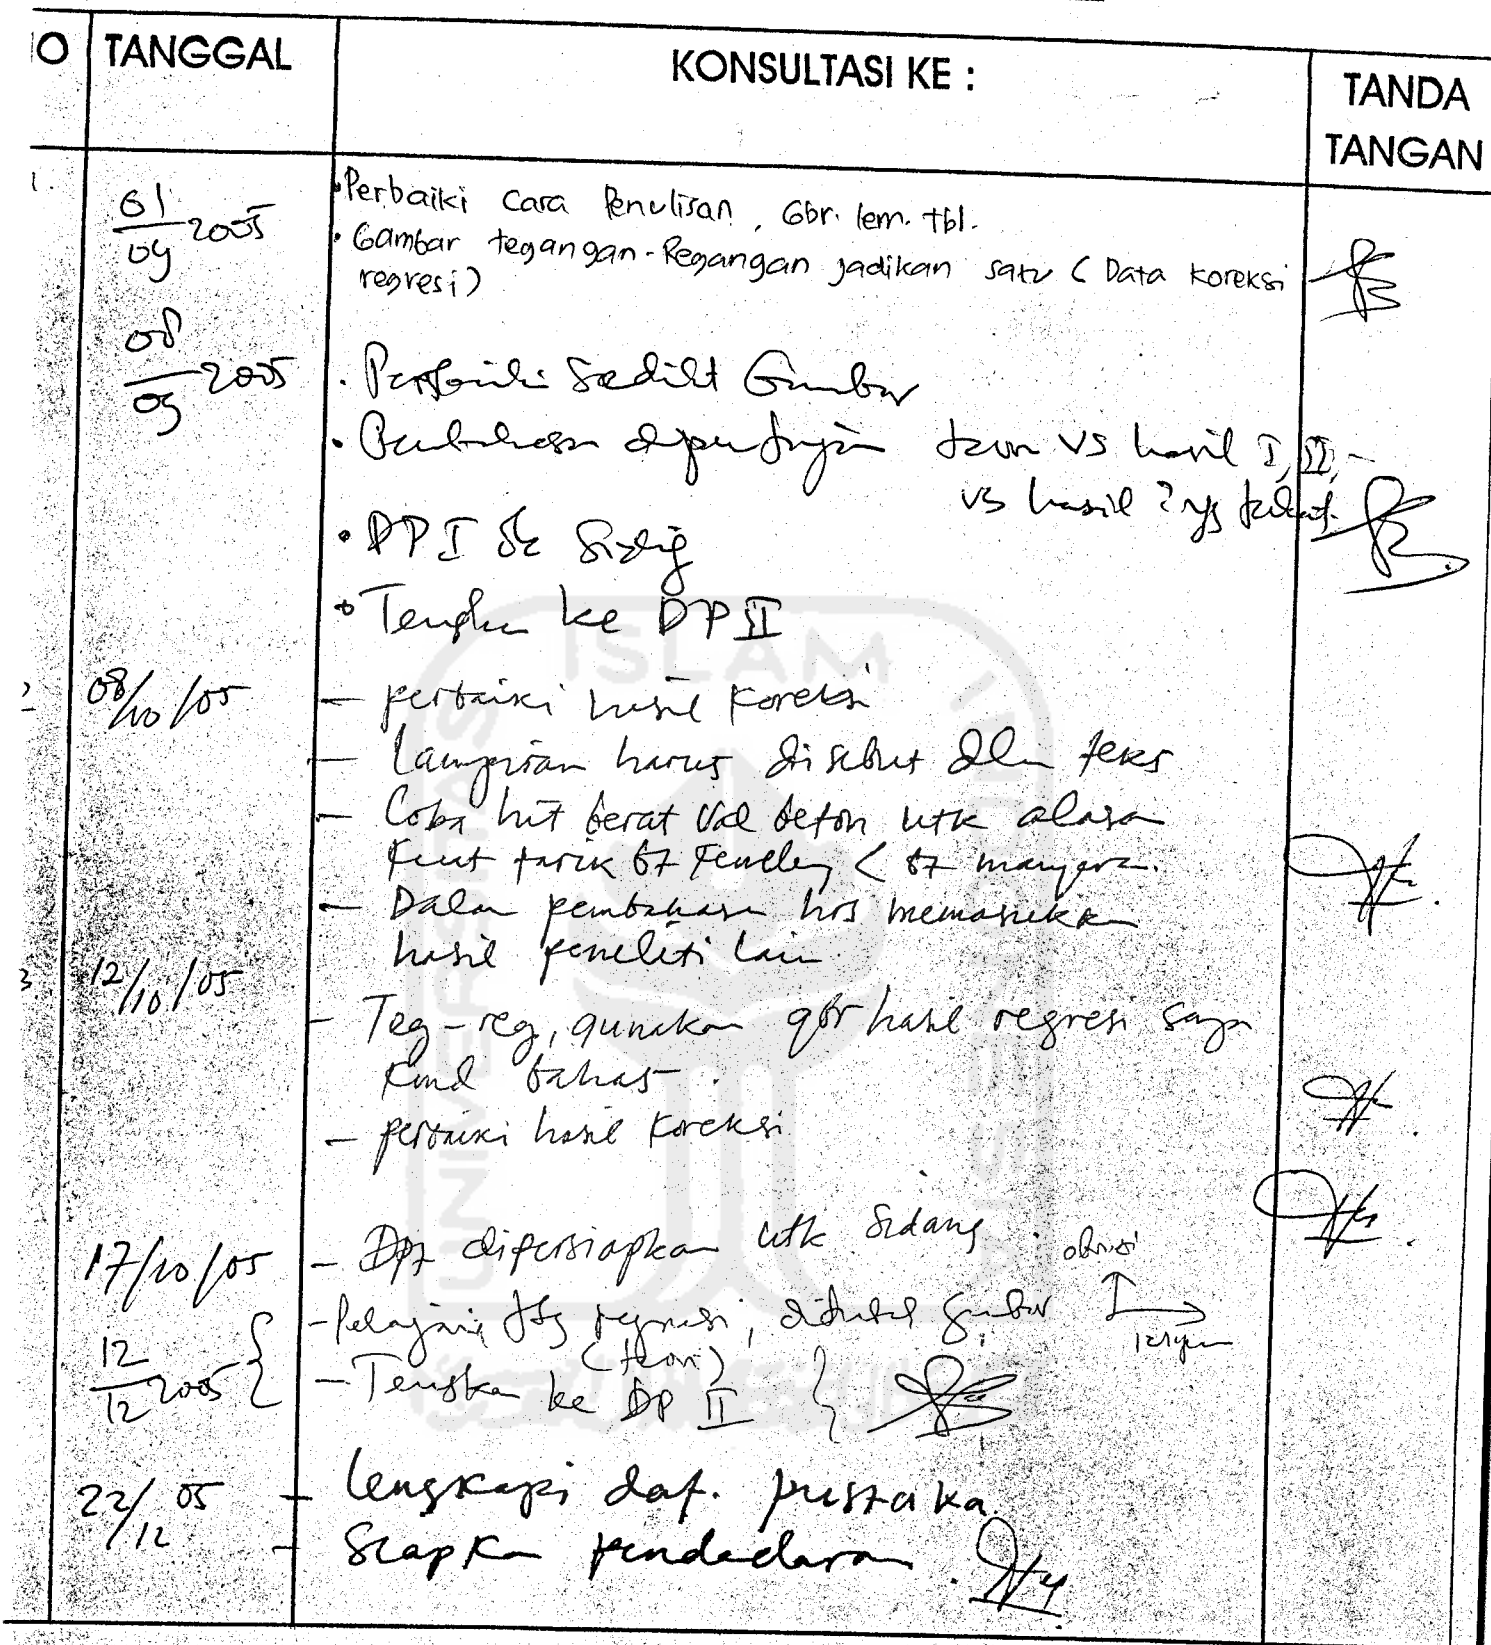 O TANGGAL KONSULTASI KE : TANDA
TANGAN
1.
01/09 2005
•Perbaiki Cara Penulisan, Gbr. lem. tbl.
• Gambar tegangan-Regangan jadikan satu ( Data Koreksi
regresi)
08/09 2005
. Perbaiki Sedikit Gambar
. Pembahasan teori VS hasil I, II,
vs hasil
• DPI Ok
• Teruskan ke DP II
2 08/10/05
- perbaiki hasil Koreksi
- Lampiran harus disebut dlm teks
- Coba hit berat Vol beton utk alasan
Kuat tarik <
- Dalam pembahasan hrs memasukkan
hasil peneliti lain
3 12/10/05
- Teg-reg, gunakan gbr hasil regresi saja
bahas.
- perbaiki hasil Koreksi
17/10/05
- dipersiapkan utk Sidang.
12/12 2005
- Pelajari ttg regresi, gambar
(teori)
- Teruskan ke DP II
22/12 05
- lengkapi daf. pustaka
- Siapkan pendadaran.
UNIVERSITAS ISLAM INDONESIA